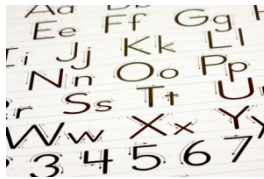 Aa
Ee Ff Gg
i Jj Kk L
Nn Oo Pp
r Ss Tt U
Ww Xx Y
3 4 5 6 7